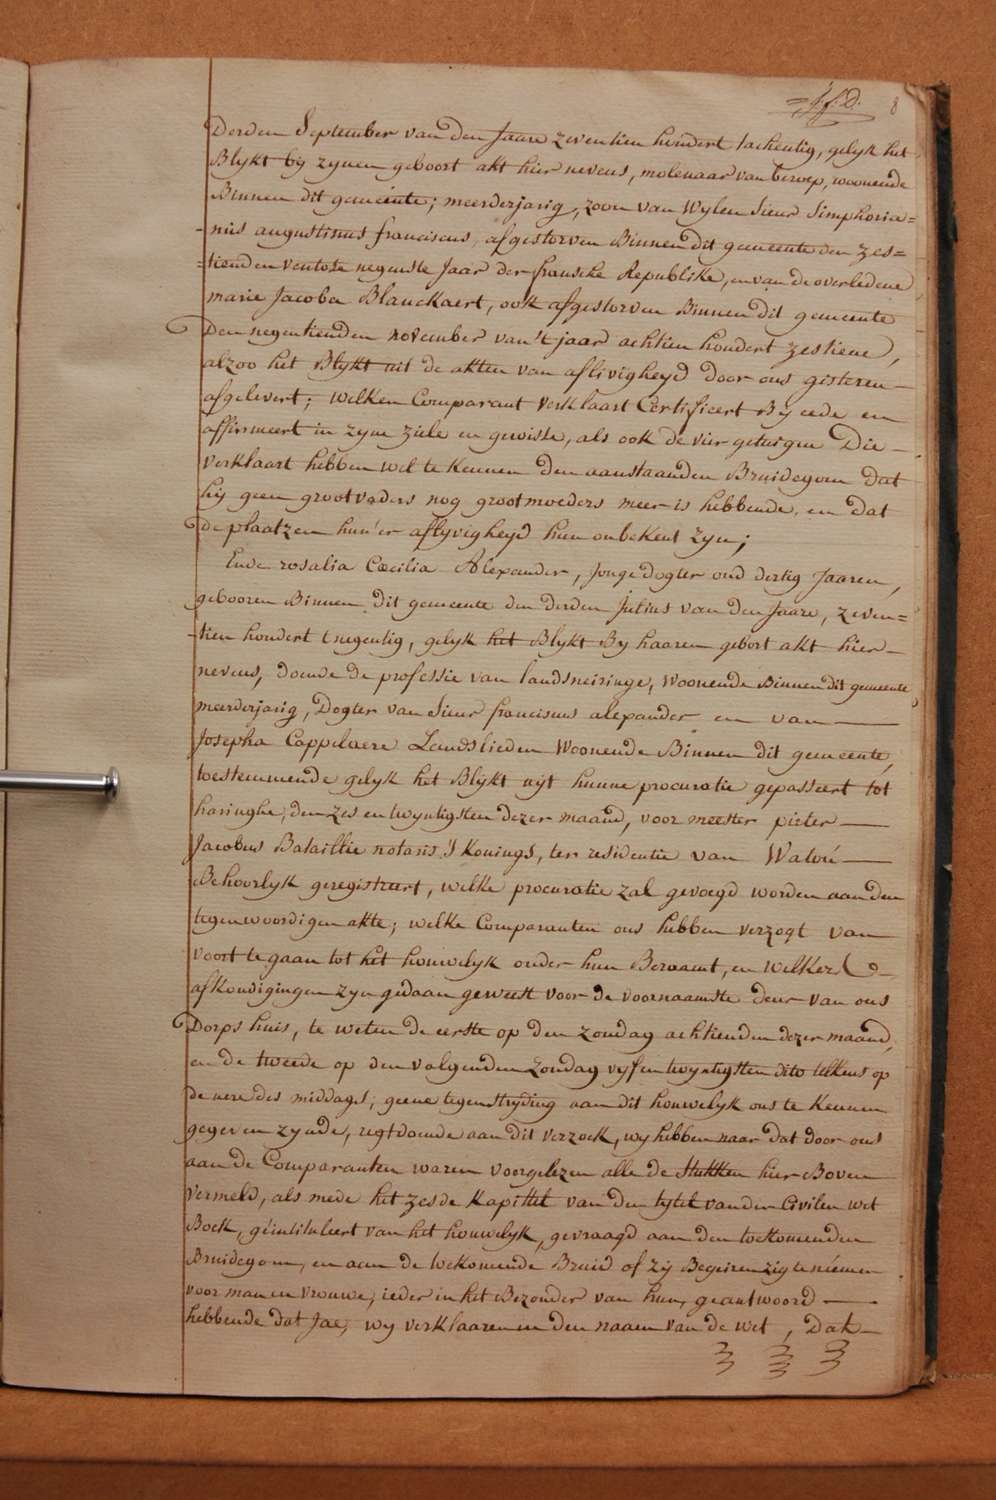 = J. f. D. 8
Derden September van den Jaare zeventien hondert tachentig, gelyk het
Blykt by zynen geboort akt hier nevens, molenaar van beroep, woonende
Binnen dit gemeente; meerderjarig, zoon van Wylen Sieur Simphoria=
-nus augustinus franciscus, afgestorven Binnen dit gemeente den zes=
=tienden ventose negenste Jaar der fransche Republike, en van de overledene
marie Jacoba Blanckaert, ook afgestorven Binnen dit gemeente
Den negentienden november van 't jaar achtien hondert zestiene,
alzoo het Blykt uit de akten van aflivigheyd door ons gisteren
afgelevert; welken Comparant verklaart Certificert By eede en
affirmeert in zyne ziele en gewisse, als ook de vier getuigen Die
verklaart hebben wel te kennen den aanstaanden Bruidegom dat
hij geen grootvaders nog grootmoeders meer is hebbende, en dat
de plaatzen hun'er aflyvigheyd hun onbekent zyn;
Ende rosalia Cœcilia Alexander, Jonge Dogter oud dertig Jaaren,
gebooren Binnen dit gemeente den derden Julius van den Jaare, zeven=
-tien hondert tnegentig, gelyk het Blykt By haaren gebort akt hier
nevens, doende de professie van landsneiringe, Woonende Binnen dit gemeente
meerderjarig, Dogter van Sieur franciscus alexander en van
Josepha Cappelaere Landslieden Woonende Binnen dit gemeente,
toestemmende gelyk het Blykt uyt hunne procuratie gepasseert tot
haringhe, den zes en twyntigsten dezer maand, voor meester pieter
Jacobus Bataillie notaris 's Konings, ter residentie van Watou
Behoorlyk geregistreert, welke procuratie zal gevoegd worden aan den
tegenwoordigen akte; welke Comparanten ons hebben verzogt van
voort te gaan tot het houwelyk onder hun Beraamt, en welkers de
afkondigingen zyn gedaan geweest voor de voornaamste deur van ons
Dorps huis, te weten de eerste op den zondag achtienden dezer maand,
en de tweede op den volgenden zondag vyf en twyntigsten dito telkens op
de uere des middags, geene tegenstryding aan dit houwelyk ons te kennen
gegeven zynde, regt doende aan dit verzoek, wy hebben naar dat door ons
aan de Comparanten waren voorgelezen alle de Stukken hier Boven
vermeld, als mede het zesde kapittel van den tytel van den Civilen wet
Boek, géintituleert van het houwelyk, gevraagd aan den toekomenden
Bruidegom, en aan de toekomende Bruid of zy Begeiren zig te niemen
voor man en vrouwe, ieder in het Bezonder van hun, geantwoord
hebbende dat Jae, wy verklaaren in den naam van de wet, Dat